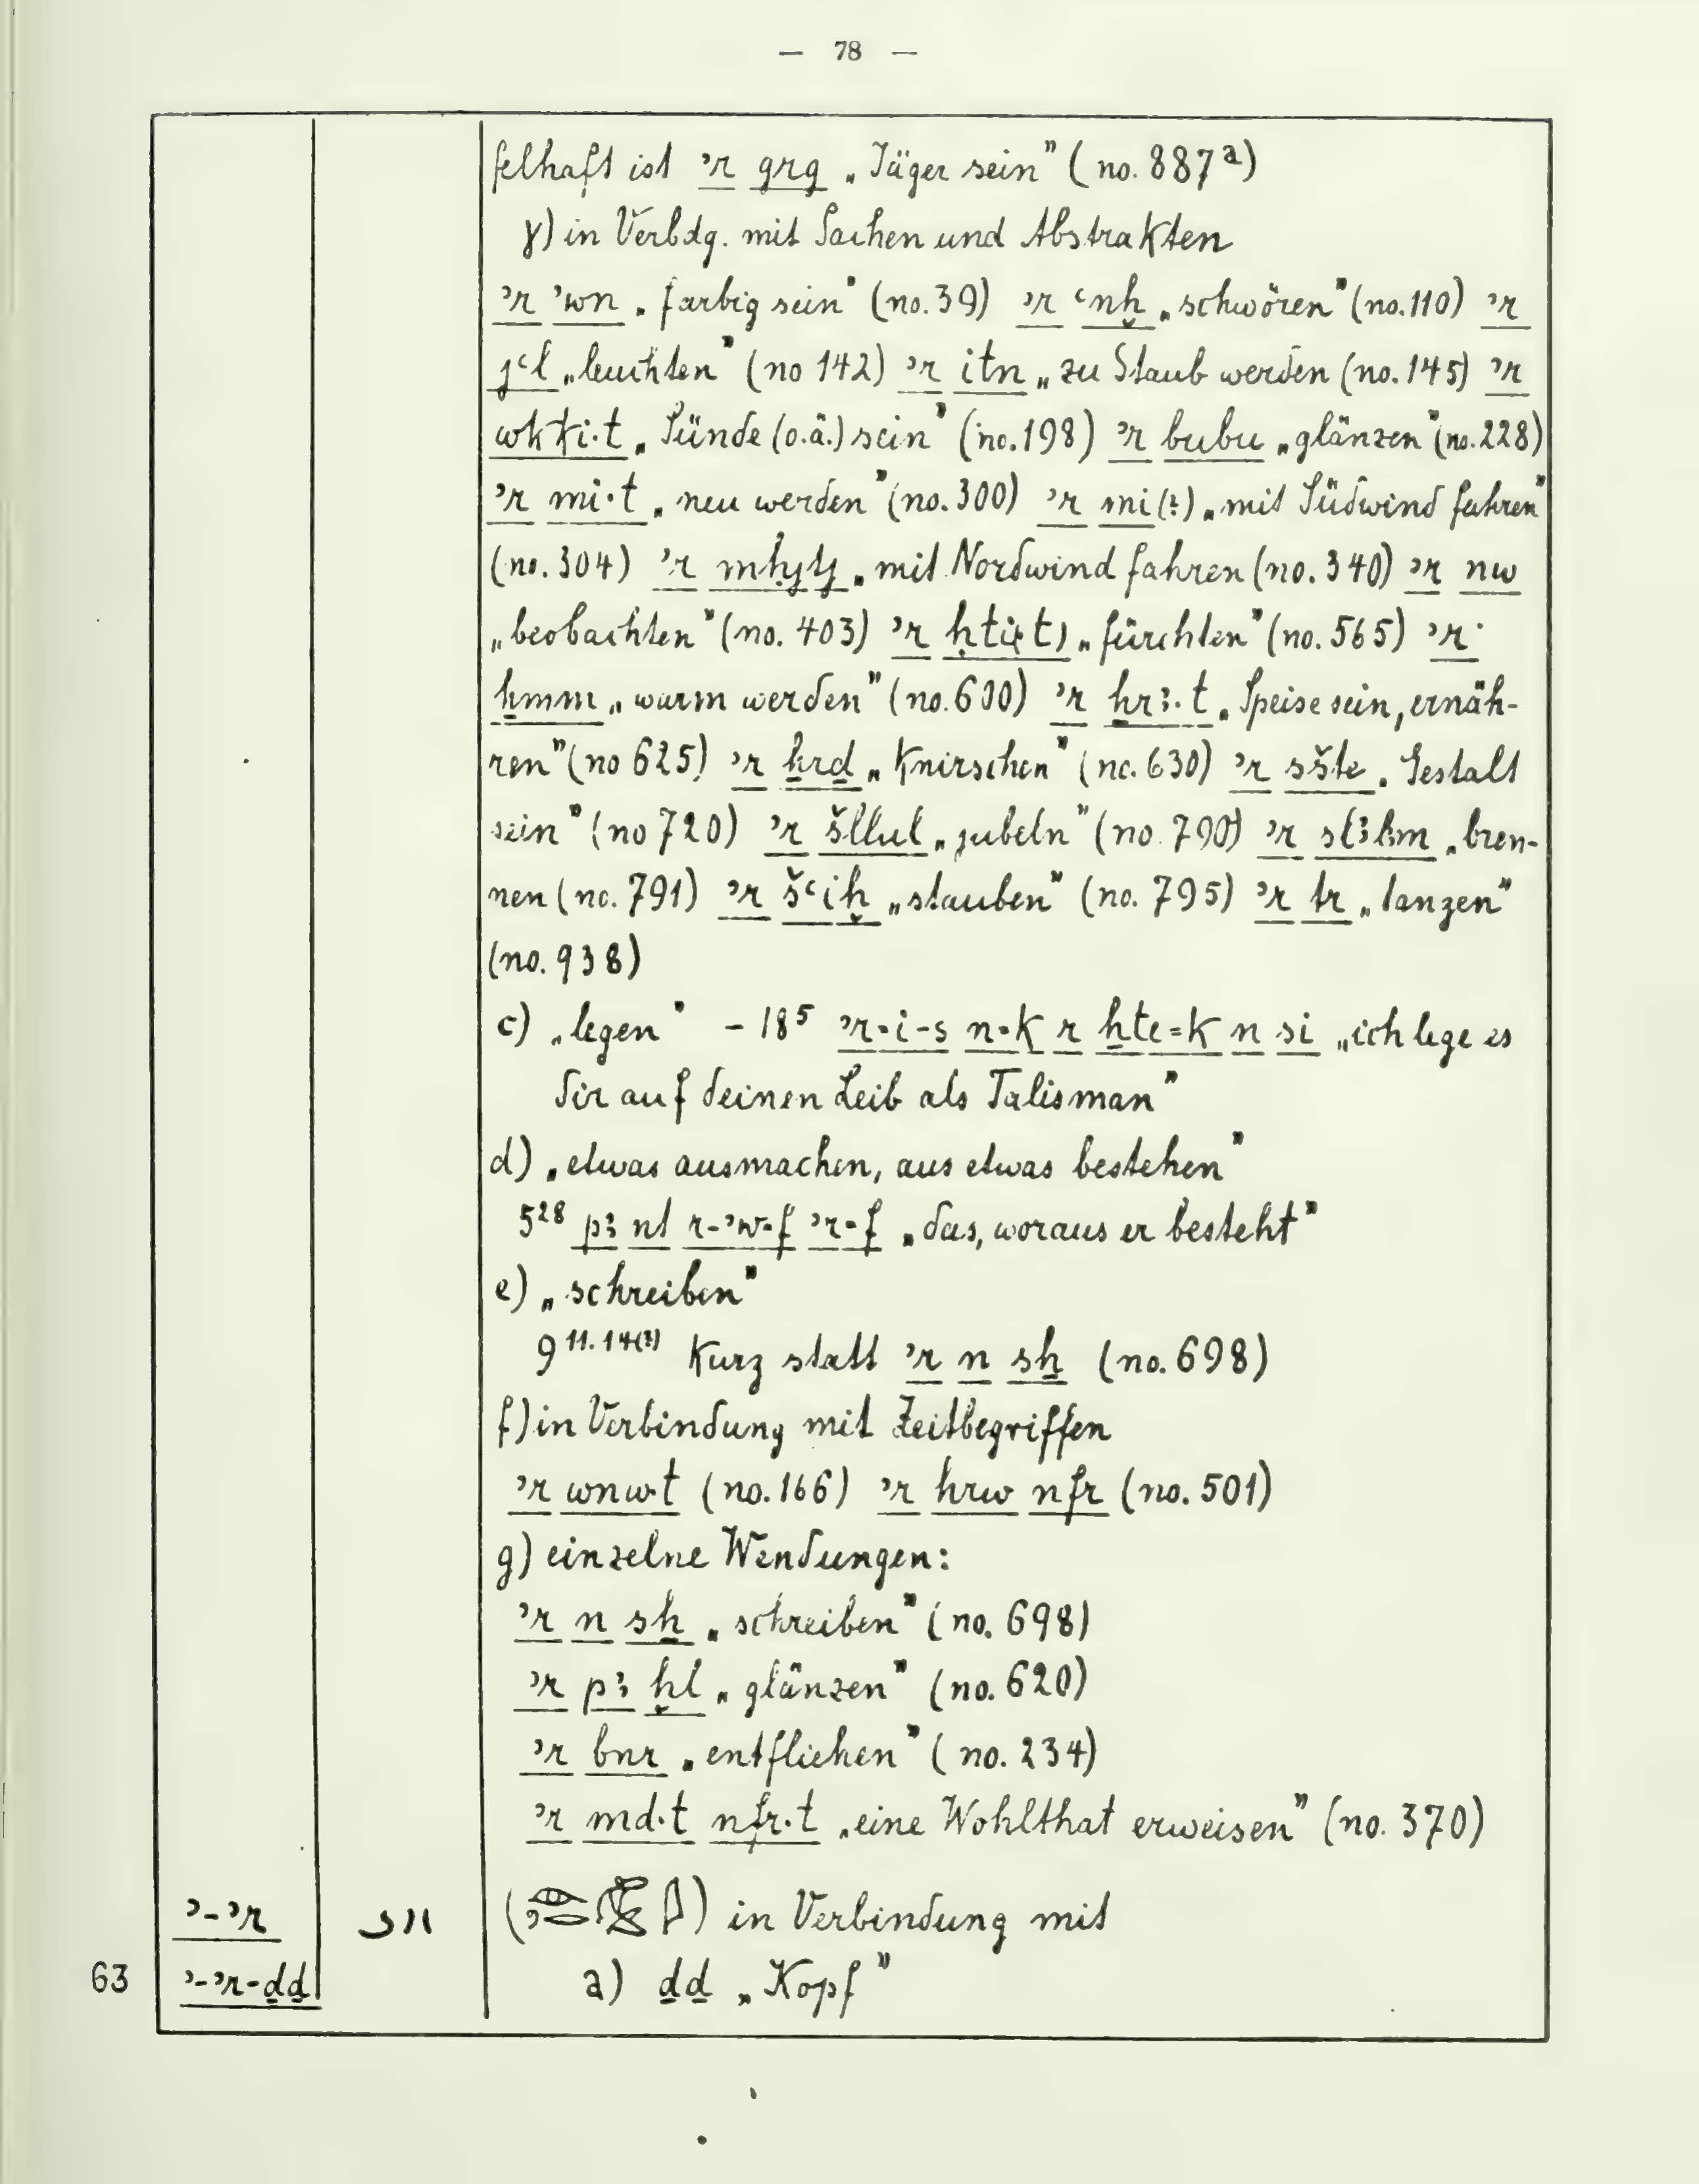 — 78 —
felhaft ist ꜥr grg „Jäger sein” (no. 887ᵃ)
γ) in Verbdg. mit Sachen und Abstrakten
ʾr ʾwn „farbig sein” (no. 39) ʾr ꜥnḫ „schwören” (no. 110) ʾr
jꜥl „leuchten” (no 142) ʾr itn „zu Staub werden (no. 145) ʾr
„Sünde (o.ä.) sein” (no. 198) ʾr bubu „glänzen” (no. 228)
ʾr mi·t „neu werden” (no. 300) ʾr mi(?) „mit Südwind fahren”
(no. 304) ʾr „mit Nordwind fahren (no. 340) ʾr nw
„beobachten” (no. 403) ʾr „fürchten” (no. 565) ʾr
ẖmm „warm werden” (no. 600) ʾr ẖrꜣ·t „Speise sein, ernäh-
ren” (no 625) ʾr ẖrḏ „Knirschen” (no. 630) ʾr sšte „Gestalt
sein” (no 720) ʾr šllul „jubeln” (no. 790) ʾr „bren-
nen (no. 791) ʾr šꜥiḫ „stauben” (no. 795) ʾr tr „tanzen”
(no. 938)
c) „legen” – 18⁵ ʾr·i-s n·k r ẖte=k n si „ich lege es
dir auf deinen Leib als Talisman”
d) „etwas ausmachen, aus etwas bestehen”
5²⁸ pꜣ nt r-ʾw=f ʾr=f „das, woraus er besteht”
e) „schreiben”
9¹¹·¹⁴⁽?⁾ Kurz statt ʾr n sẖ (no. 698)
f) in Verbindung mit Zeitbegriffen
ʾr wnw·t (no. 166) ʾr hrw nfr (no. 501)
g) einzelne Wendungen:
ʾr n sẖ „schreiben” (no. 698)
ʾr pꜣ ḫl „glänzen” (no. 620)
ʾr bnr „entfliehen” (no. 234)
ʾr md·t nfr·t „eine Wohlthat erweisen” (no. 370)
ʾ-ʾr ( ) in Verbindung mit
63 ʾ-ʾr-ḏḏ a) ḏḏ „Kopf”